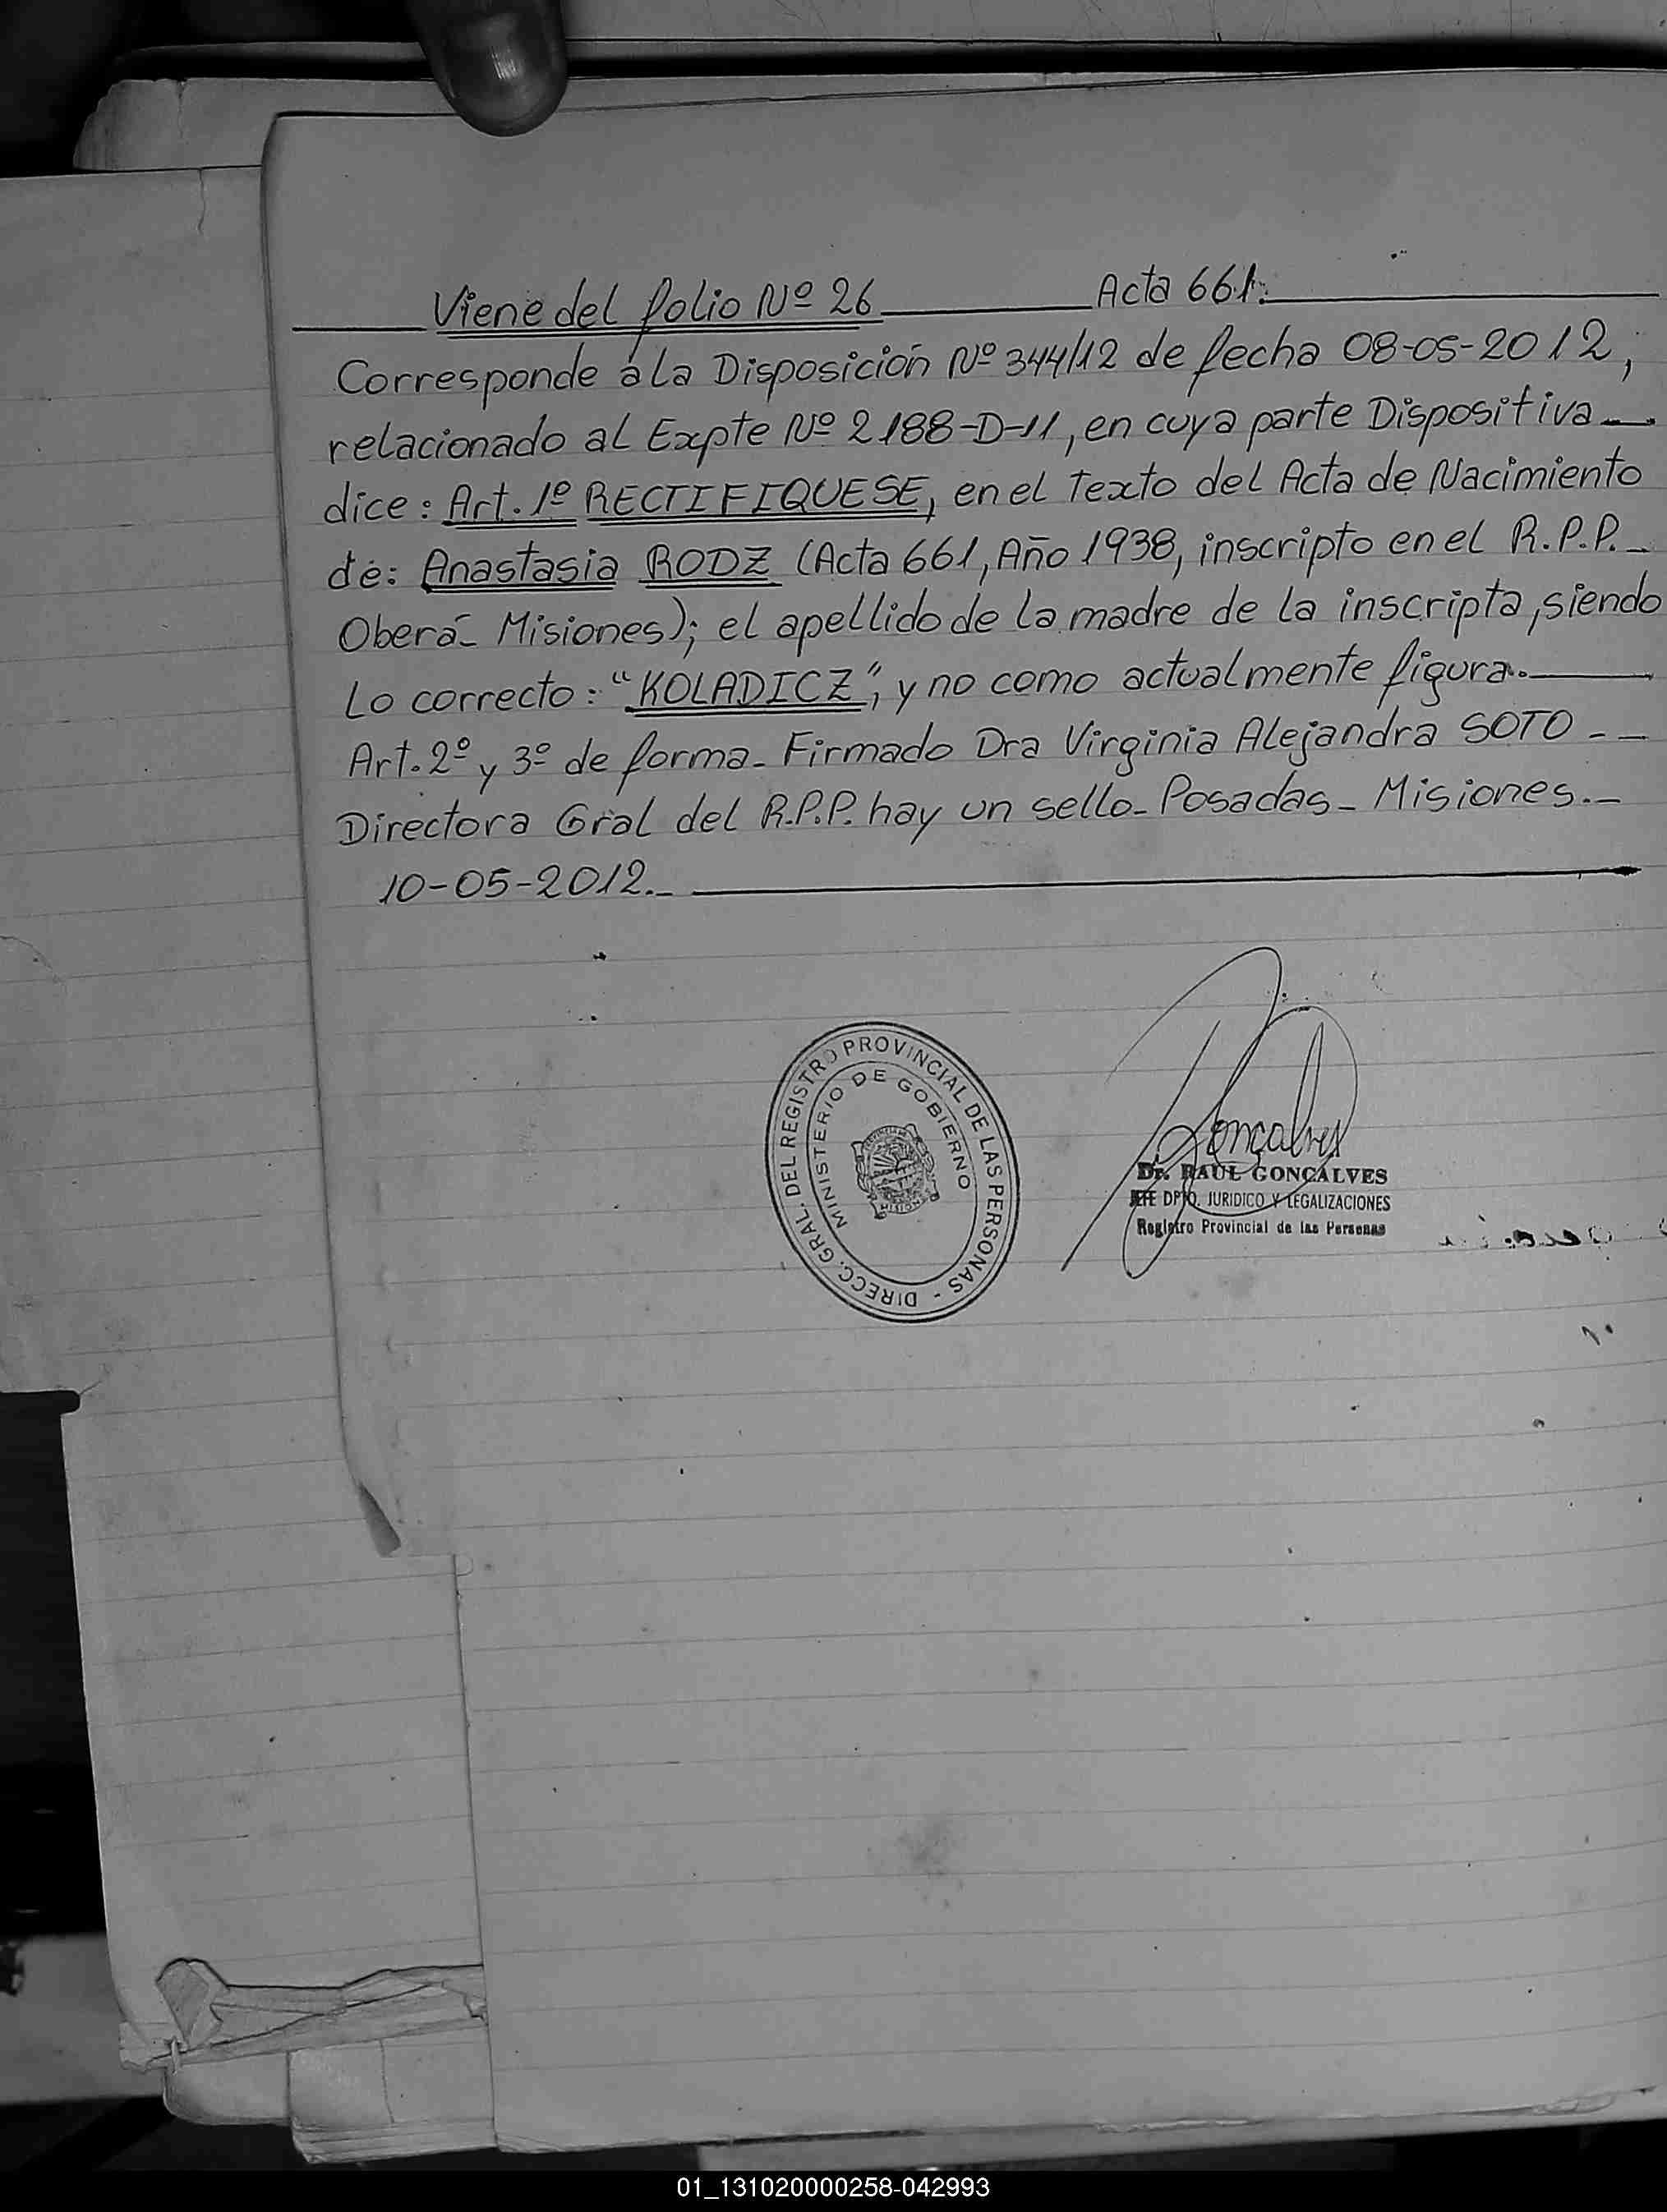 Viene del folio Nº 26 Acta 661.
Corresponde a la Disposición Nº 344/12 de fecha 08-05-2012,
relacionado al Expte Nº 2188-D-11, en cuya parte Dispositiva
dice: Art. 1º RECTIFIQUESE, en el Texto del Acta de Nacimiento
de: Anastasia RODZ (Acta 661, Año 1938, inscripto en el R.P.P.-
Oberá- Misiones); el apellido de la madre de la inscripta, siendo
Lo correcto: "KOLADICZ", y no como actualmente figura.
Art. 2º y 3º de forma- Firmado Dra Virginia Alejandra SOTO - -
Directora Gral del R.P.P. hay un sello- Posadas- Misiones.-
10-05-2012.-
DIRECC. GRAL. DEL REGISTRO PROVINCIAL DE LAS PERSONAS -
MINISTERIO DE GOBIERNO
Gonçalves
Dr. RAUL GONÇALVES
JEFE DPTO. JURIDICO Y LEGALIZACIONES
Registro Provincial de las Personas
01_131020000258-042993